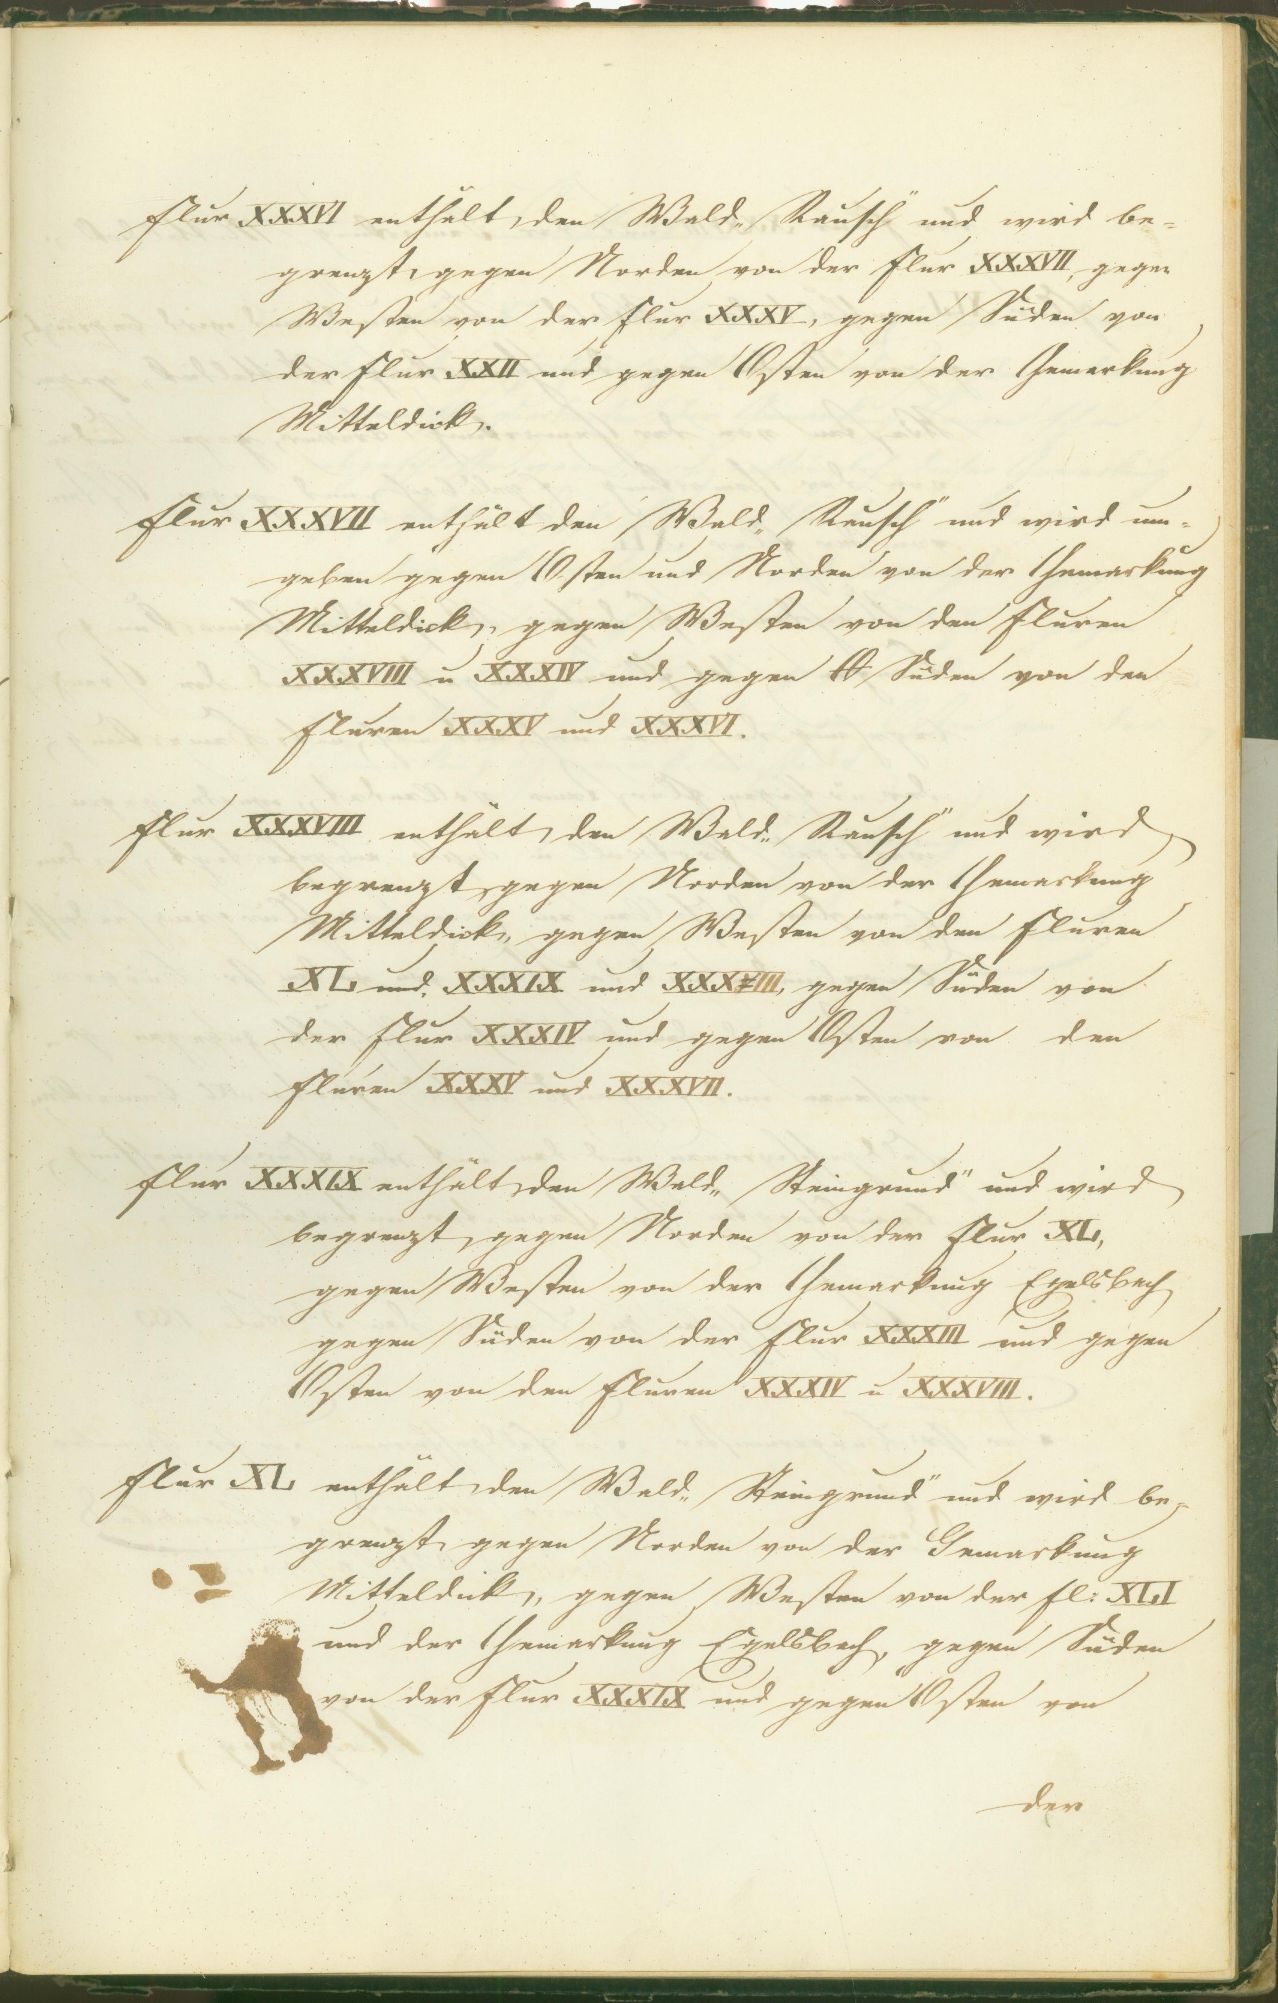 Flur XXXVI enthält den Wald „Rausch" und wird be-
grenzt gegen Norden von der Flur XXXVII, gegen
Westen von der Flur XXXV, gegen Süden von
der Flur XXII und gegen Osten von der Gemarkung
Mitteldick.
Flur XXXVII enthält den Wald „Rausch" und wird um-
geben gegen Osten und Norden von der Gemarkung
Mitteldick, gegen Westen von den Fluren
XXXVIII u XXXIV und gegen Süden von den
Fluren XXXV und XXXVI.
Flur XXXVIII enthält den Wald „Rausch" und wird
begrenzt gegen Norden von der Gemarkung
Mitteldick, gegen Westen von den Fluren
XL und XXXIX und XXXIII, gegen Süden von
der Flur XXXIV und gegen Osten von den
Fluren XXXV und XXXVII.
Flur XXXIX enthält den Wald „Steingrund" und wird
begrenzt gegen Norden von der Flur XL,
gegen Westen von der Gemarkung Egelsbach
gegen Süden von der Flur XXXIII und gegen
Osten von den Fluren XXXIV u XXXVIII.
Flur XL enthält den Wald „Steingrund" und wird be-
grenzt gegen Norden von der Gemarkung
Mitteldick, gegen Westen von der Fl: XLI
und der Gemarkung Egelsbach, gegen Süden
von der Flur XXXIX und gegen Osten von
der